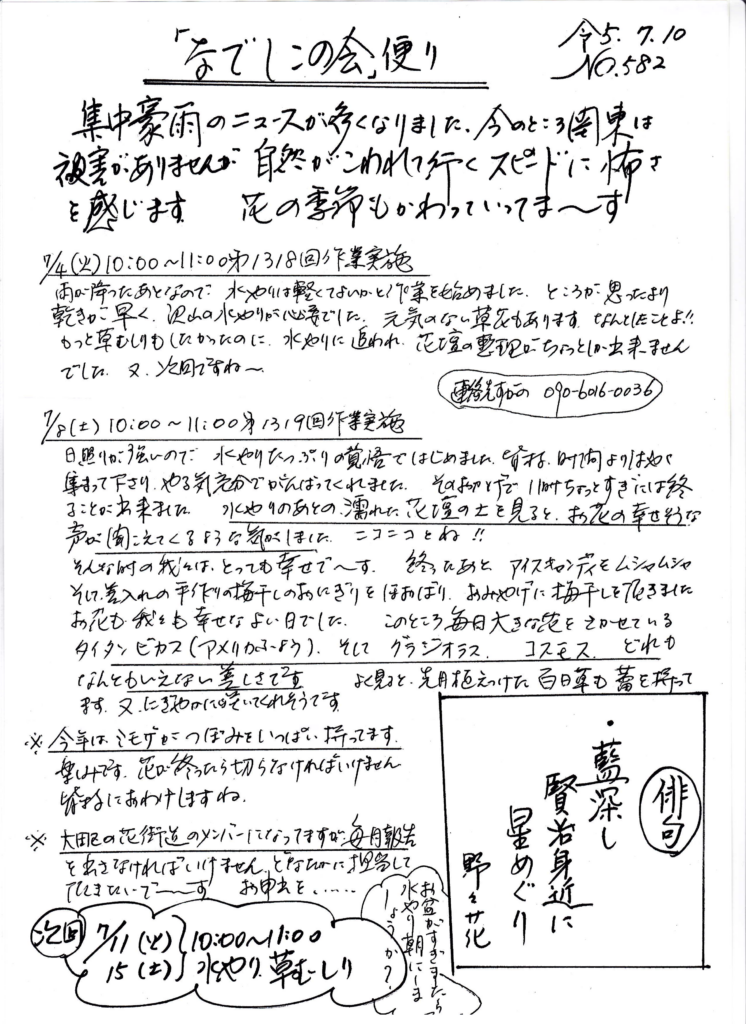 「なでしこの会」便り
令5.7.10
NO.582
集中豪雨のニュースが多くなりました、今のところ関東は
被害がありませんが 自然がこわれて行くスピードに怖さ
を感じます 花の季節もかわっていってま〜す
7/4(火)10:00〜11:00第1318回作業実施
雨が降ったあとなので 水やりは軽くてよいかと作業を始めました、ところが思ったより
乾きが早く、沢山の水やりが必要でした、元気のない草花もあります、なんとしたことよ!!
もっと草むしりもしたかったのに、水やりに追われ、花壇の整理がちょっとしか出来ません
でした、又、次回ですね〜
連絡先すがの 090-6016-0036
7/8(土)10:00〜11:00第1319回作業実施
日照りが強いので 水やりたっぷりの覚悟ではじめました、皆様、時間よりはやく
集まって下さり、やる気充分でがんばってくれました、そのおかげで11時ちょっとすぎには終
ることが出来ました 水やりのあとの、濡れた花壇の土を見ると、お花の幸せそうな
声が聞こえてくるような気がしました ニコニコとね!!
そんな時の我々は、とっても幸せで〜す、終ったあと アイスキャンディをムシャムシャ
そして、差入れの手作りの梅干しのおにぎりをほおばり、おみやげに梅干しを頂きました
お花も我々も幸せなよい日でした、このところ毎日大きな花をさかせている
タイタンビカス(アメリカふよう)、そして グラジオラス、コスモス、どれも
なんともいえない美しさです よく見ると、先月植えつけた百日草も蕾を持って
ます、又、にぎやかに咲いてくれそうです
※今年は、ミモザがつぼみをいっぱい持ってます、
楽しみです、花が終ったら切らなければいけません
皆様におわけしますね、
※大田区の花街道のメンバーになってますが、毎月報告
を出さなければいけません、どなたかに担当して
頂きたいで〜〜す お申出を、……
次回
7/11(火) 10:00〜11:00
15(土) 水やり、草むしり
お盆がすぎましたら
水やり朝にしま
しょうか?
俳句
・藍深し
賢治身近に
星めぐり
野々花